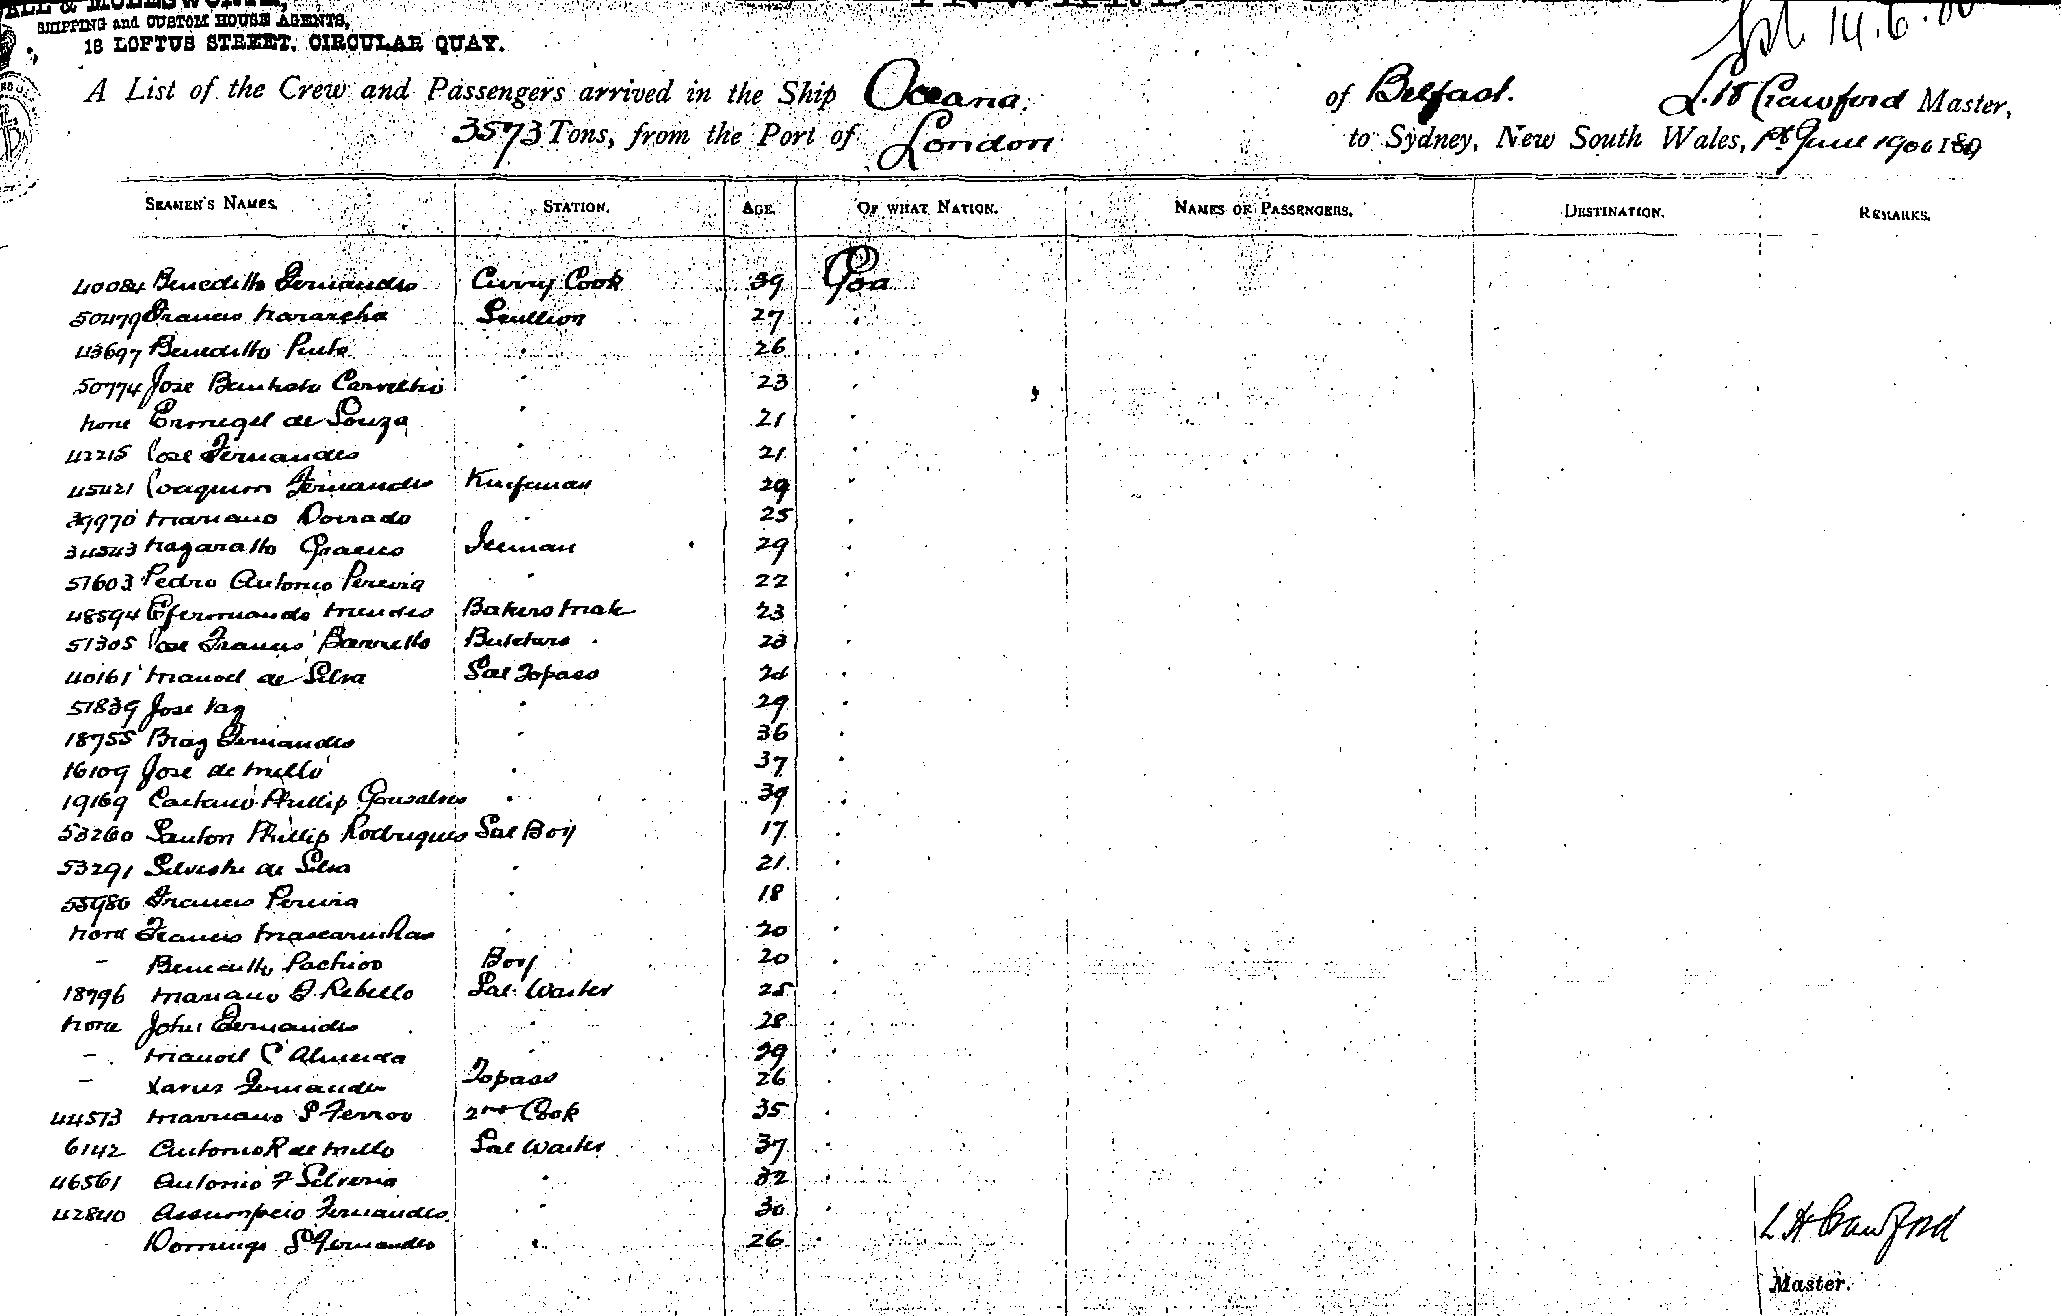 & MOLESWORTH,
SHIPPING and CUSTOM HOUSE AGENTS,
18 LOFTUS STREET, CIRCULAR QUAY.
INWARD.
14.6.00
A List of the Crew and Passengers arrived in the Ship Oceana. of Belfast. L. H Crawford Master,
3573 Tons, from the Port of London to Sydney, New South Wales, 1st June 1900 189
SEAMEN'S NAMES. STATION. AGE. OF WHAT NATION. NAMES OF PASSENGERS. DESTINATION. REMARKS.
40084 Beneditto Fernandes Curry Cook 39 Goa
50479 Francis Scullion 27
43697 Beneditto Pinto 26
50774 Jose Bautista Carvalho 23
None de Souza 21
42215 Jose Fernandes 21
45421 Joaquim Fernandes Knifeman 29
39970 Mariano Dourado 25
34543 Nazaratto Gracias Iceman 29
57603 Pedro Antonio Pereira 22
48594 Mendes Bakers Mate 23
51305 Jose Francis Barretto Butchers 23
40161 Manoel de Silva Sal Topass
51839 Jose Vaz 29
18755 Braz Fernandes 36
16109 Jose de Mello 37
19169 Caetano Phillip Gonsalves 39
53260 Santon Phillip Rodrigues Sal Boy 17
53291 Silvestre de Silva 21
Francis Pereira 18
None Francis Mascarenhas 20
- Beneditto Pacheco Boy 20
18796 Mariano F. Rebello Sal. Waiter 25
None John Fernandes 28
- Manoel C Almeida 29
- Xavier Fernandes Topass 26
44573 Marriano S Ferrao 2nd Cook 35
6142 Antonio R de Mello Sal Waiter 37
46561 Antonio F Silveria 32
42840 Assumpcio Fernandes. 30
Domingo S Fernandes 26
L H Crawford
Master.